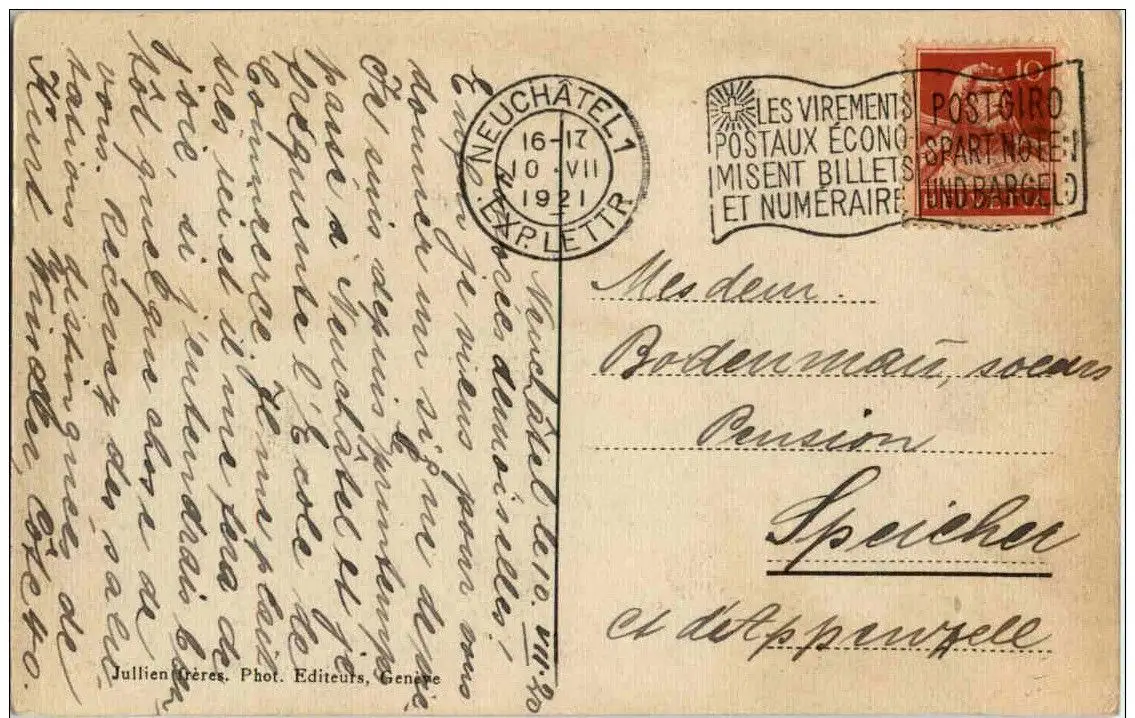 NEUCHÂTEL 1
16-17
10.VII
1921
EXP. LETTR.
LES VIREMENTS
POSTAUX ÉCONO-
MISENT BILLETS
ET NUMÉRAIRE
POSTGIRO
SPART NOTEN
UND BARGELD
10
Mesdem.
Bodenmann, soeurs
Pension
Speicher
Ct d'Appenzell
Neuchâtel le 10. VII.
demoiselles,
Enfin je viens pour vous
donner un signe de vie
Je suis depuis le printemps
passé à Neuchâtel et je
fréquente l'École de
Commerce. Il me plait
très ici et il me fera de
joie, si j'entendrais bien
tôt quelque chose de
vous. Recevez des salu
tations distinguées de
Kurt Winkler, Côte 40.
Jullien frères. Phot. Editeurs, Genève